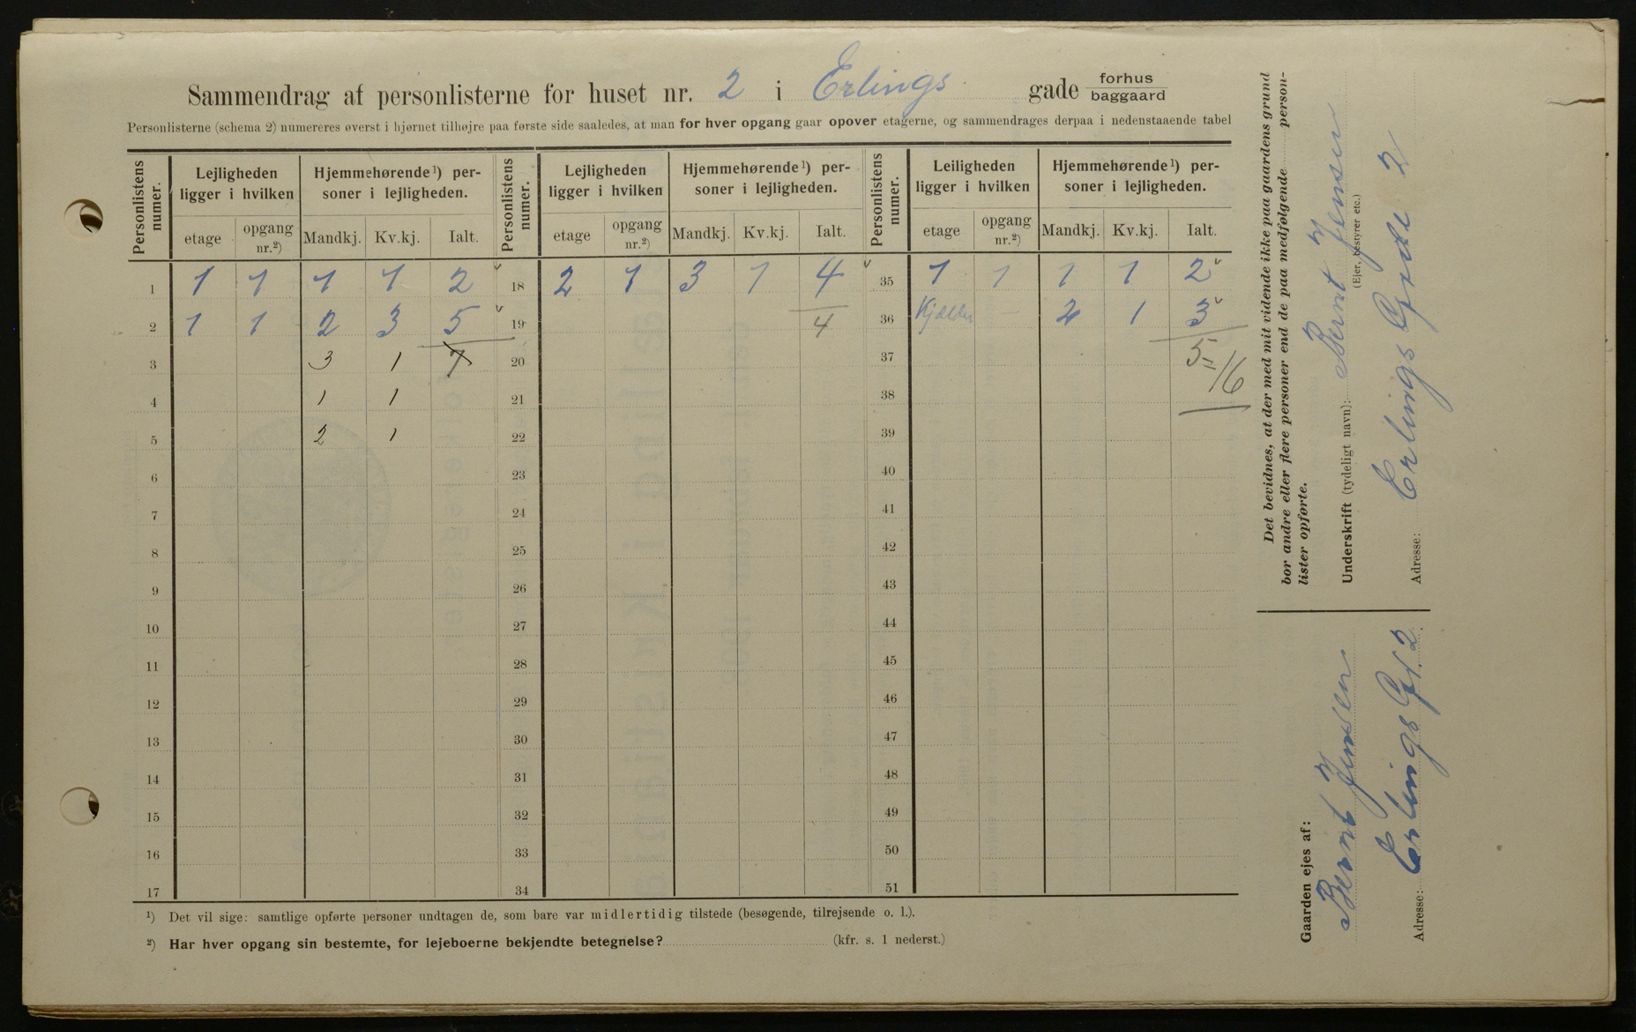 Sammendrag af personlisterne for huset nr. 2 i Erlings gade forhus baggaard
Personlisterne (schema 2) numereres øverst i hjørnet tilhøjre paa første side saaledes, at man for hver opgang gaar opover etagerne, og sammendrages derpaa i nedenstaaende tabel
Personlistens numer. Lejligheden ligger i hvilken Hjemmehørende¹) personer i lejligheden. Personlistens numer. Lejligheden ligger i hvilken Hjemmehørende¹) personer i lejligheden. Personlistens numer. Leiligheden ligger i hvilken Hjemmehørende¹) personer i lejligheden.
etage opgang nr.²) Mandkj. Kv.kj. Ialt. etage opgang nr.²) Mandkj. Kv.kj. Ialt. etage opgang nr.²) Mandkj. Kv.kj. Ialt.
1 1 1 1 1 2 18 2 1 3 1 4 35 1 1 1 1 2
2 1 1 2 3 5 19 4 36 Kjælder - 2 1 3
3 3 1 7 20 37 5 16
4 1 1 21 38
5 2 1 22 39
6 23 40
7 24 41
8 25 42
9 26 43
10 27 44
11 28 45
12 29 46
13 30 47
14 31 48
15 32 49
16 33 50
17 34 51
¹) Det vil sige: samtlige opførte personer undtagen de, som bare var midlertidig tilstede (besøgende, tilrejsende o. l.).
²) Har hver opgang sin bestemte, for lejeboerne bekjendte betegnelse? (kfr. s. 1 nederst.)
Det bevidnes, at der med mit vidende ikke paa gaardens grund
bor andre eller flere personer end de paa medfølgende person-
lister opførte.
Underskrift (tydeligt navn): Bernt Jensen
(Ejer, bestyrer etc.)
Adresse: Erlings Gade 2
Gaarden ejes af:
Bernt Jensen
Adresse: Erlings Gd. 2